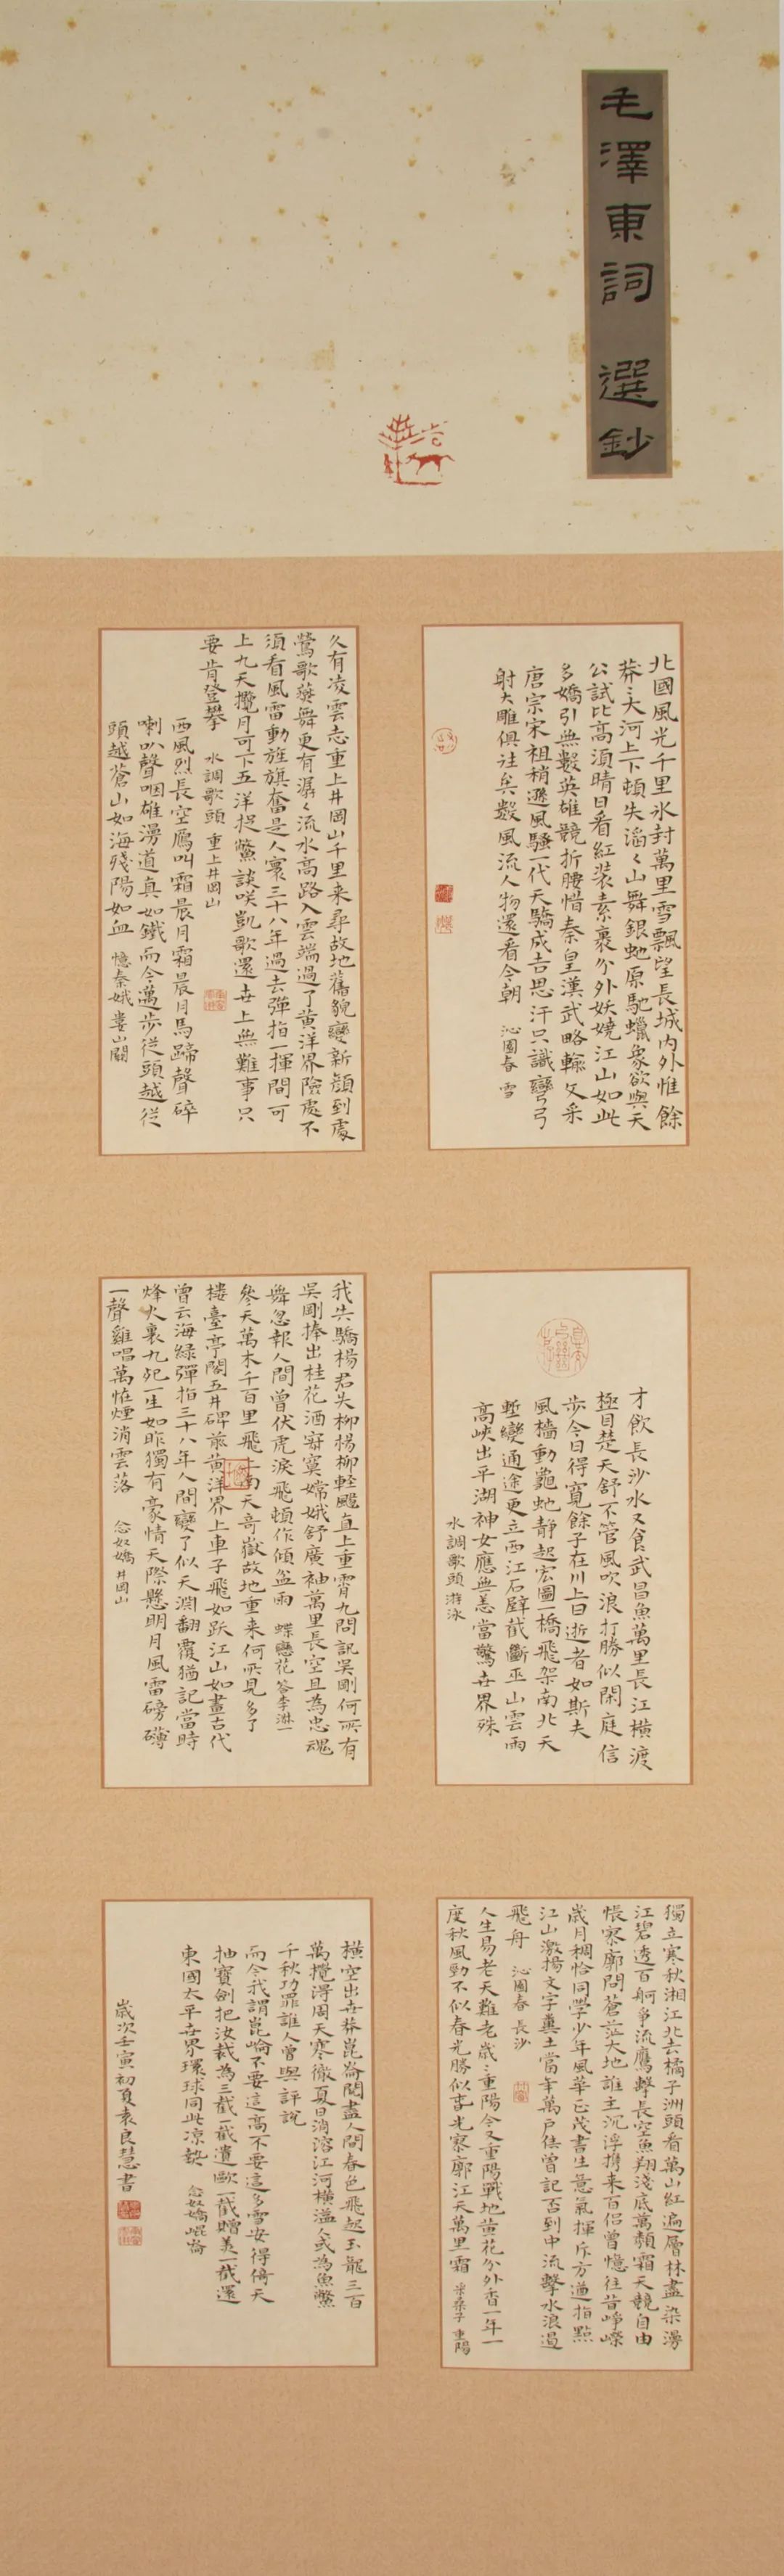 毛澤東詞 選鈔
北國風光千里氷封萬里雪飄望長城内外惟餘
莽〻大河上下頓失滔〻山舞銀蛇原馳蠟象欲與天
公試比高須晴日看紅装素裹分外妖嬈江山如此
多嬌引無數英雄競折腰惜秦皇漢武略輸文采
唐宗宋祖稍遜風騷一代天驕成吉思汗只識彎弓
射大雕俱往矣數風流人物還看今朝 沁園春 雪
久有凌雲志重上井岡山千里来尋故地舊貌變新顏到處
鶯歌燕舞更有潺〻流水高路入雲端過了黄洋界險處不
須看風雷動旌旗奮是人寰三十八年過去彈指一揮間可
上九天攬月可下五洋捉鱉談笑凱歌還世上無難事只
要肯登攀 水調歌頭 重上井岡山
西風烈長空雁叫霜晨月霜晨月馬蹄聲碎
喇叭聲咽雄漫道真如鐵而今邁步從頭越從
頭越蒼山如海殘陽如血 憶秦娥 婁山關
才飲長沙水又食武昌魚萬里長江橫渡
極目楚天舒不管風吹浪打勝似閑庭信
步今日得寬餘子在川上曰逝者如斯夫
風檣動龜蛇静起宏圖一橋飛架南北天
塹變通途更立西江石壁截斷巫山雲雨
高峽出平湖神女應無恙當驚世界殊
水調歌頭 游泳
我失驕楊君失柳楊柳輕颺直上重霄九問訊吳剛何所有
吳剛捧出桂花酒寂寞嫦娥舒廣袖萬里長空且為忠魂
舞忽報人間曾伏虎淚飛頓作傾盆雨 蝶戀花 答李淑一
參天萬木千百里飛上南天奇嶽故地重来何所見多了
樓臺亭閣五井碑前黄洋界上車子飛如跃江山如畫古代
曾云海緑彈指三十八年人間變了似天淵翻覆猶記當時
烽火裏九死一生如昨獨有豪情天際懸明月風雷磅礴
一聲雞唱萬怪煙消雲落 念奴嬌 井岡山
獨立寒秋湘江北去橘子洲頭看萬山紅遍層林盡染漫
江碧透百舸爭流鷹擊長空魚翔淺底萬類霜天競自由
悵寥廓問蒼茫大地誰主沉浮攜来百侣曾憶往昔崢嶸
歲月稠恰同學少年風華正茂書生意氣揮斥方遒指點
江山激揚文字糞土當年萬戶侯曾記否到中流擊水浪遏
飛舟 沁園春 長沙
人生易老天難老歲〻重陽今又重陽戰地黄花分外香一年一
度秋風勁不似春光勝似春光寥廓江天萬里霜 采桑子 重陽
橫空出世莽崑崙閱盡人間春色飛起玉龍三百
萬攪得周天寒徹夏日消溶江河橫溢人或為魚鱉
千秋功罪誰人曾與評說
而今我謂崑崙不要這高不要這多雪安得倚天
抽寶劍把汝裁為三截一截遺歐一截贈美一截還
東國太平世界環球同此凉熱 念奴嬌 崐崙
歲次壬寅初夏袁良慧書